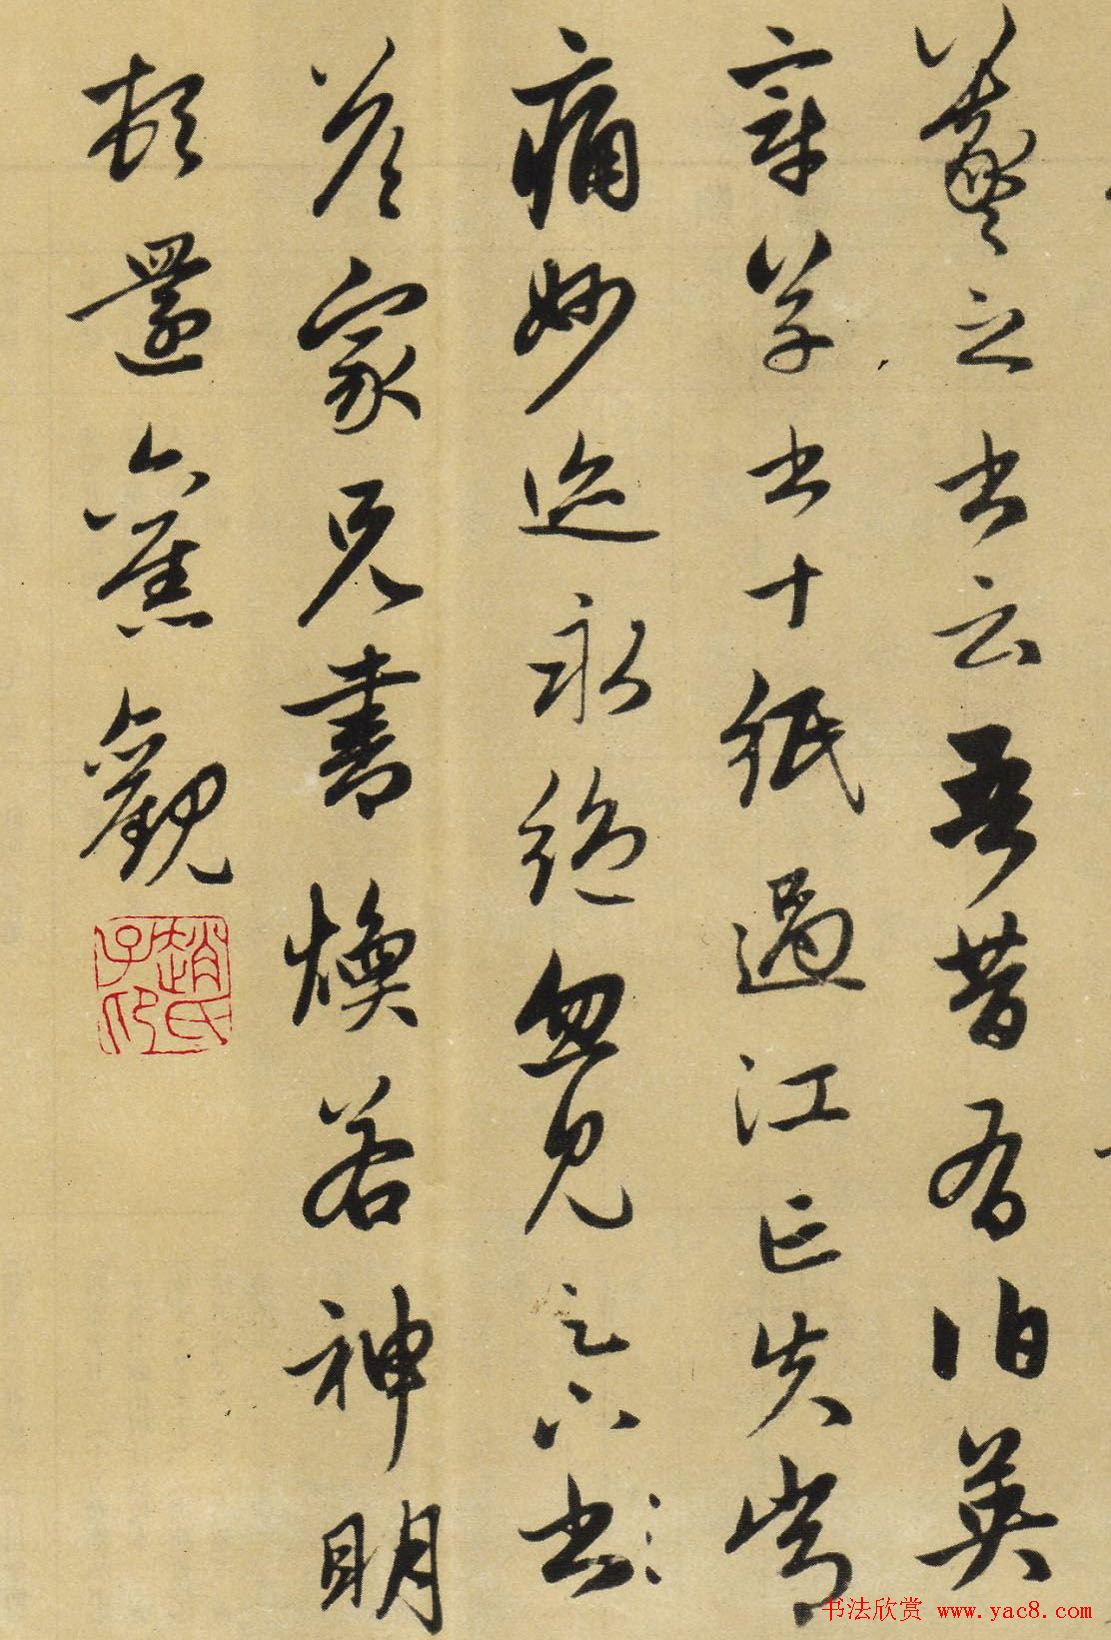 羲之書云吾昔有伯英
章草書十紙過江亡失常
痛妙迹永絕忽見足下書
答家兄書煥若神明
頓還舊觀
趙氏子昂
书法欣赏 www.yac8.com